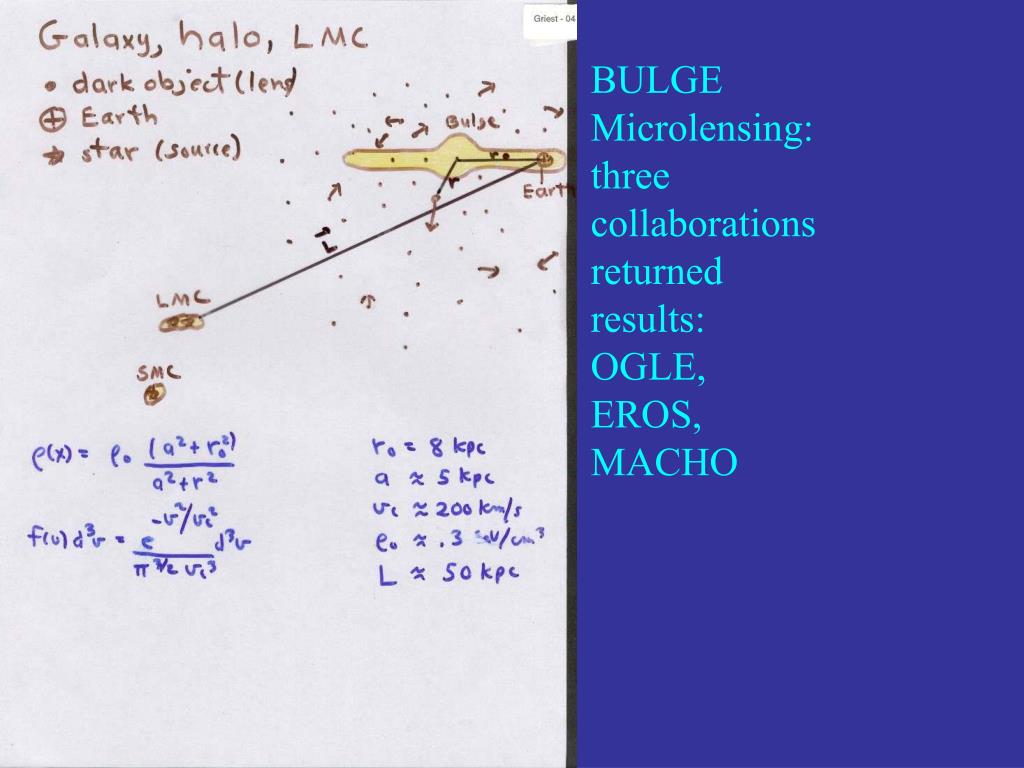 Griest - 04
Galaxy, halo, LMC
• dark object (lens)
⊕ Earth
star (source)
Bulge
r₀
r
Earth
L
LMC
SMC
ρ(x) = ρ₀ (a² + r₀²) / (a² + r²)
f(v) d³v = e^(-v²/v_c²) d³v / (π^(3/2) v_c³)
r₀ = 8 kpc
a ≈ 5 kpc
v_c ≈ 200 km/s
ρ₀ ≈ .3 GeV/cm³
L ≈ 50 kpc
BULGE
Microlensing:
three
collaborations
returned
results:
OGLE,
EROS,
MACHO